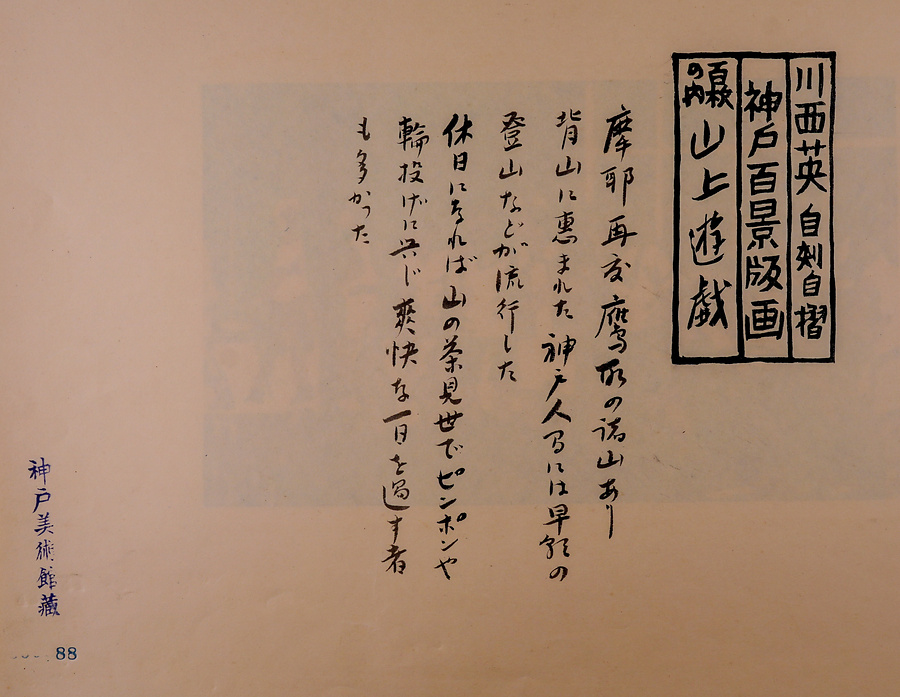 川西英 自刻自摺
神戸百景版画
百枚の内 山上遊戯
摩耶再度鷹取の諸山あり
背山に惠まれた神戸人間には早朝の
登山などが流行した
休日になれば山の茶見世でピンポンや
輪投げに興じ爽快な一日を過す者
も多かった
神戸美術館蔵
88